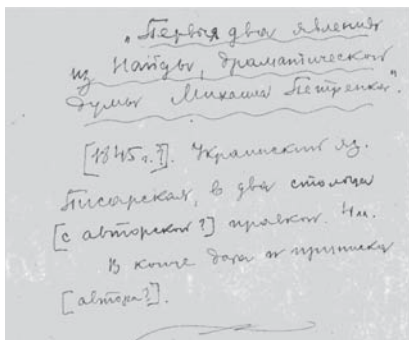 „Первыя два явления
из Найды, драматической
думы Михаила Петренка".
[1845 г.?]. Украинский яз.
Писарская, в два столбца
[с авторской?] правкой. 4 л.
В конце дата и приписка
[автора?].